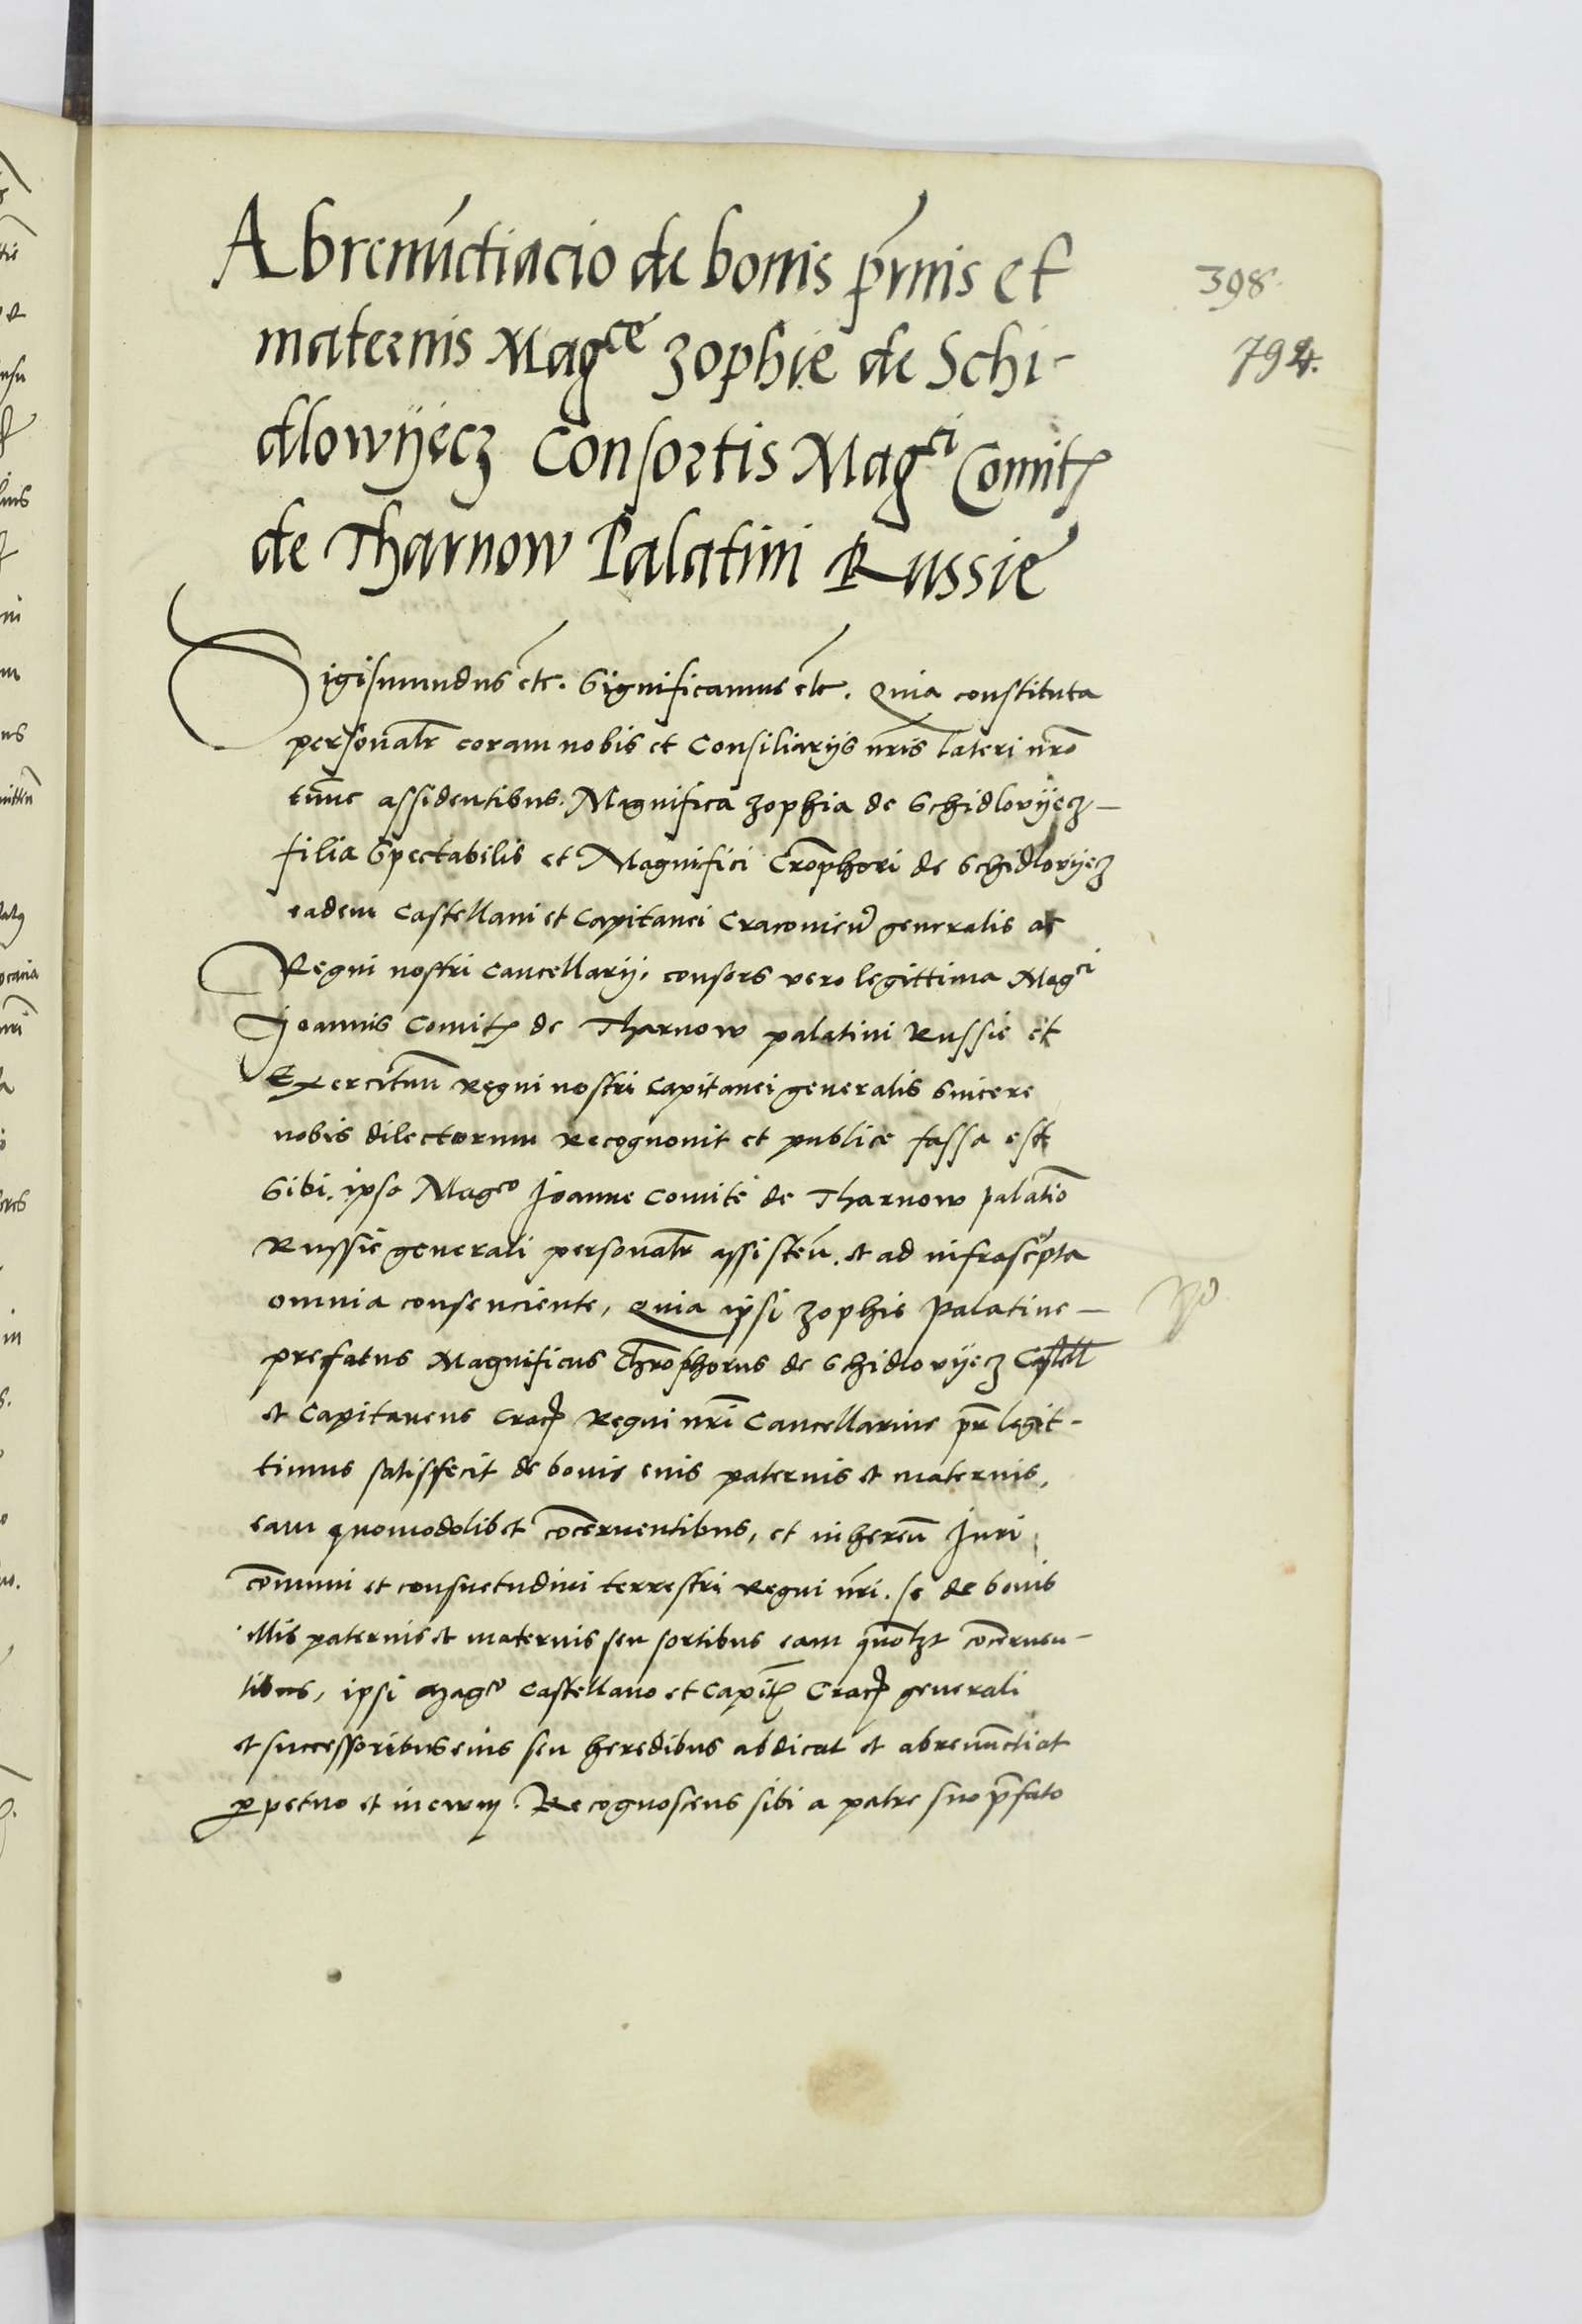 Abrenūctiacio de bonis pr̄nis et
maternis Mag^ce Zophie de Schi-
dlowÿecz Consortis Mag^ci Comit̄
de Tharnow Palatini Russie
398.
794.
Sigismundus etc. Significamus etc. Quia constituta
personalr̄ coram nobis et Consiliarÿs nr̄is lateri nr̄o
tūnc assidentibus. Magnifica Zophia de Schidlovÿecz –
filia Spectabilis et Magnifici Crōphori de Schidlovÿecz
eadem Castellani et Capitanei Cracovien̄ generalis ac
Regni nostri Cancellarÿ, consors vero legittima Mag^ci
Joannis Comit̄ de Tharnow palatini Russie et
Exercituū Regni nostri Capitanei generalis sincere
nobis dilectorum Recognovit et publice fassa est
Sibi. ipso Mag^co Joanne Comite de Tharnow palatio̅
Russie generali personalr̄ assisteṅ. et ad infrascr̄pta
omnia consenciente, Quia ipsi Zophie Palatine –
prefatus Magnificus Chrōphorus de Schidlovÿecz Castell̄
et Capitaneus Crac̄ Regni nr̄i Cancellarius pr̄ legit-
timus satisfecit de bonis eius paternis et maternis,
eam quomodolibet cōcernentibus, et inhereṅ Juri
cōmuni et consuetudini terrestri Regni nr̄i. se de bonis
illis paternis et maternis seu sortibus eam quolȝt cōcernen-
tibus, ipsi Mag^co Castellano et Capit̄ Crac̄ generali
et successoribus eius seu heredibus abdicat et abrenūctiat
ꝑpetuo et in ewm. Recognoscens sibi a patre suo p̄fato